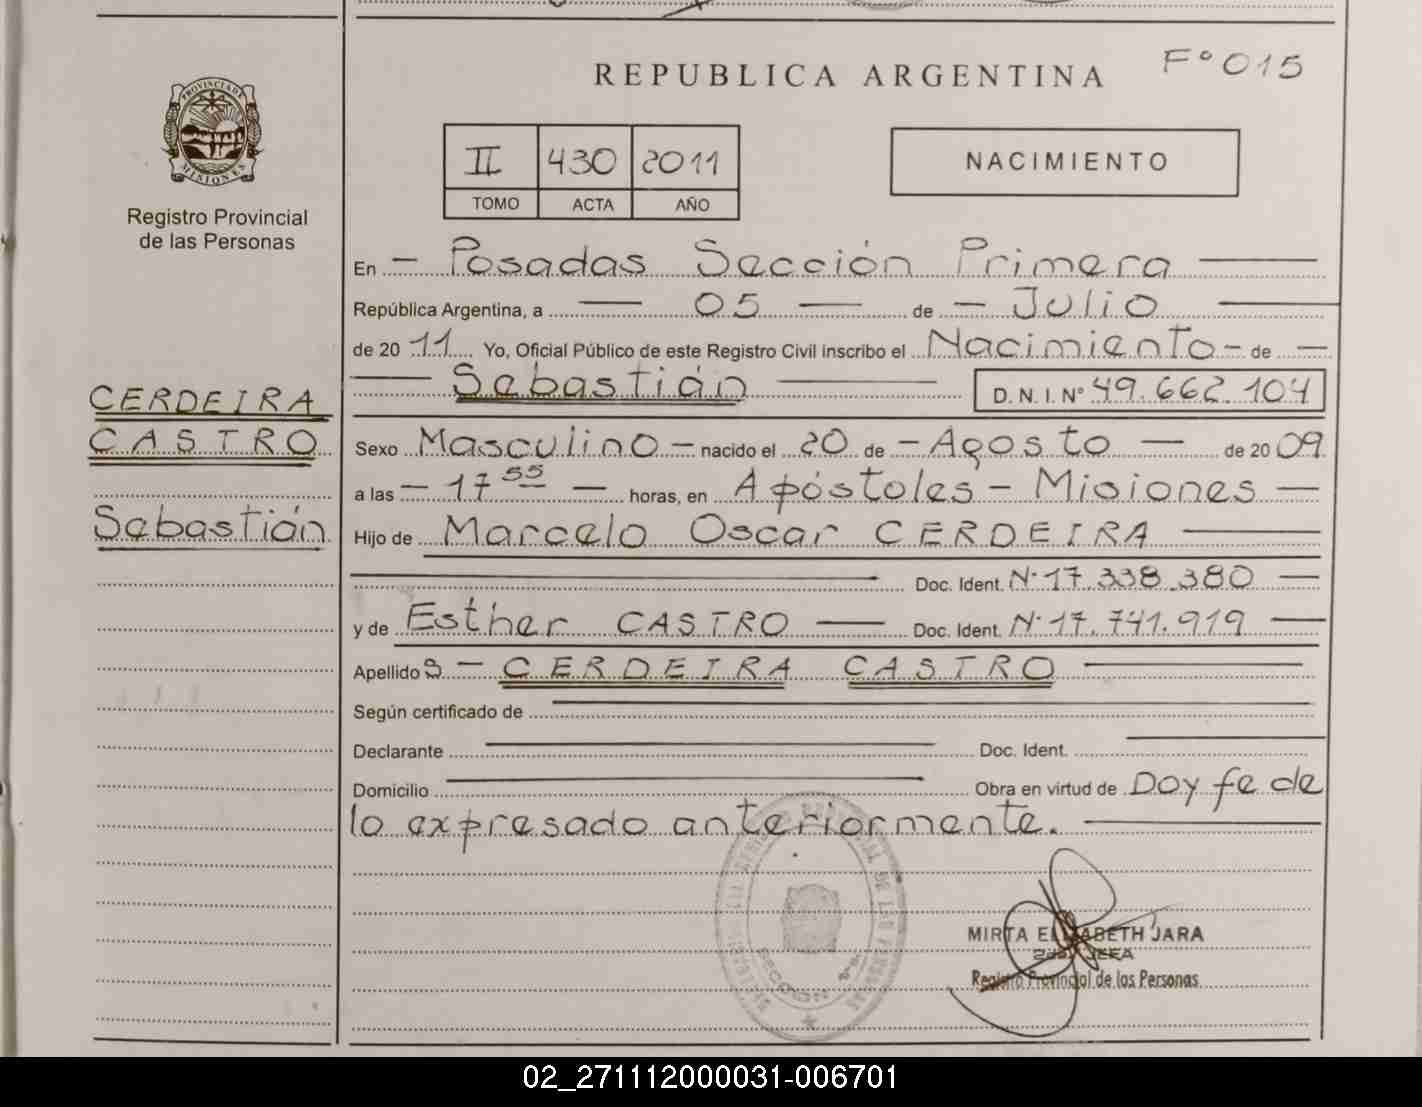 REPUBLICA ARGENTINA
Fº 015
PROVINCIA DE
MISIONES
Registro Provincial
de las Personas
II 430 2011
TOMO ACTA AÑO
NACIMIENTO
En – Posadas Sección Primera
República Argentina, a — 05 — de – Julio
de 2011 Yo, Oficial Público de este Registro Civil inscribo el Nacimiento – de –
— Sebastián —
D.N.I. Nº 49.662.104
CERDEIRA
CASTRO
Sebastián
Sexo Masculino – nacido el 20 de – Agosto — de 2009
a las – 17 55 – horas, en Apóstoles – Misiones –
Hijo de Marcelo Oscar CERDEIRA
Doc. Ident. Nº 17.338.380 —
y de Esther CASTRO — Doc. Ident. Nº 17.741.919 —
Apellido s – CERDEIRA CASTRO
Según certificado de
Declarante Doc. Ident.
Domicilio Obra en virtud de Doy fe de
lo expresado anteriormente.
MIRTA ELIZABETH JARA
JEFA
Registro Provincial de las Personas
02_271112000031-006701